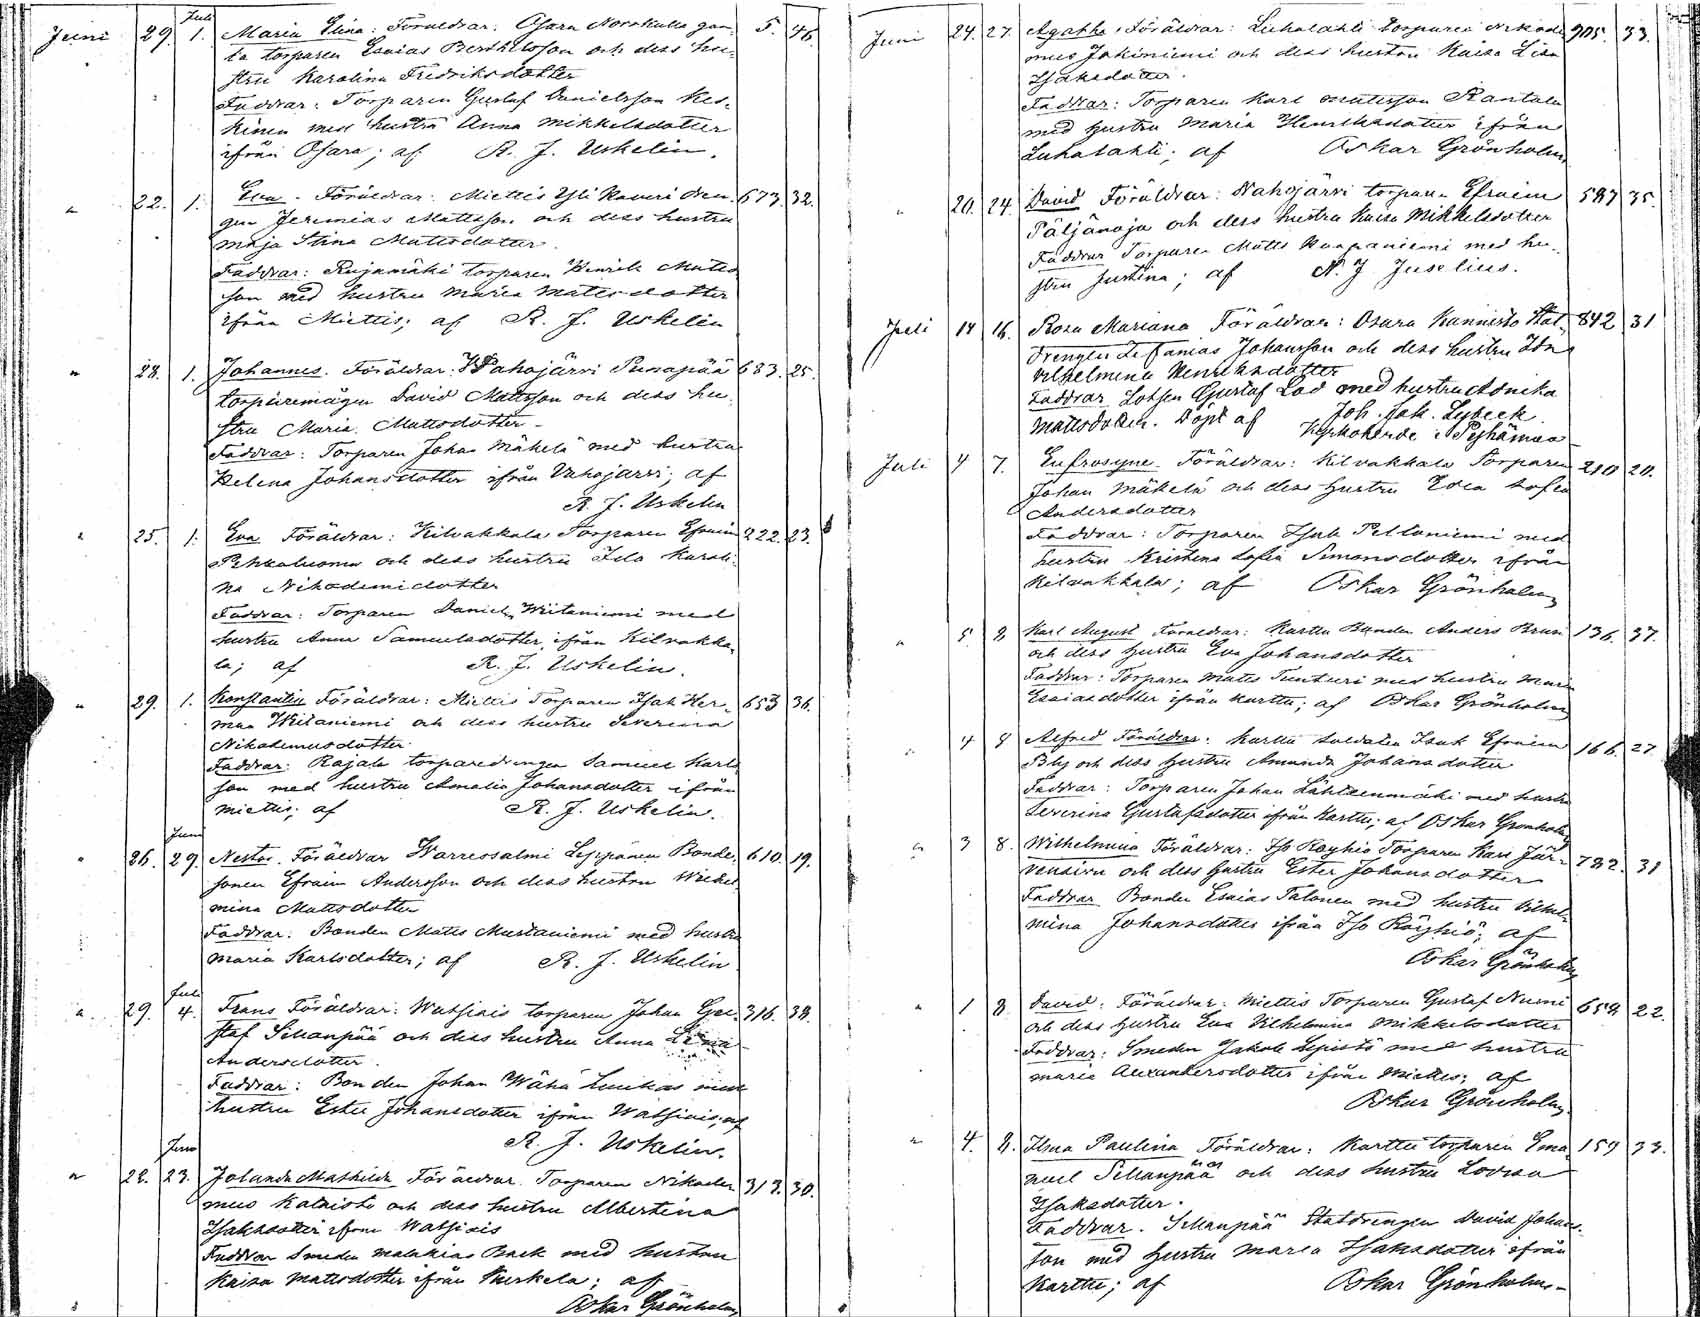 Juli
Juni 29. 1. Maria Elina. Föräldrar: Osara Norrkulla gam-
la torparen Esaias Berthelsson och dess hu-
stru Karolina Fredriksdotter 5. 46
Faddrar: Torparen Gustaf Danielsson Kes-
kinen med hustru Anna Mikkelsdotter
ifrån Osara; af R. J. Uskelin.
" 22. 1. Eva. Föräldrar: Miettis Yli Kaveri dren- 673. 32.
gen Jeremias Mattsson och dess hustru
Maja Stina Mattsdotter.
Faddrar: Rujamäki torparen Henrik Matts
son med hustru Maria Mattsdotter
ifrån Miettis; af R. J. Uskelin
" 28. 1. Johannes. Föräldrar: Vahojärvi Punapää 683. 25.
torparemågen David Mattsson och dess hu-
stru Maria Mattsdotter.
Faddrar: Torparen Johan Mäkelä med hustru
Helena Johansdotter ifrån Vahojärvi; af
R. J. Uskelin
" 25. 1. Eva Föräldrar: Kilvakkala Torparen Efraim 222. 23.
Pihkaluoma och dess hustru Ida Karoli-
na Nikodemidotter
Faddrar: Torparen Daniel Witaniemi med
hustru Anna Samuelsdotter, ifrån Kilvakka-
la; af R. J. Uskelin.
" 29. 1. Konstantin Föräldrar: Miettis Torparen Isak Her- 653 36.
man Witaniemi och dess hustru Severina
Nikodemusdotter.
Faddrar: Rajala torparedrengen Samuel Karls
son med hustru Amalia Johansdotter ifrån
Miettis; af R. J. Uskelin.
Juni
" 26. 29. Nestor. Föräldrar Warressalmi Leppänen Bonde- 610. 19.
sonen Efraim Andersson och dess hustru Wilhel
mina Mattsdotter
Faddrar: Bonden Matts Mustaniemi med hustru
Maria Karlsdotter; af R. J. Uskelin
Juli
" 29. 4. Frans Föräldrar: Watsiais torparen Johan Gu- 316. 38.
staf Sillanpää och dess hustru Anna Lena
Andersdotter.
Faddrar: Bonden Johan Wähä Laukas med
hustru Ester Johansdotter ifrån Watsiais; af
R. J. Uskelin.
Juni
" 22. 23. Jolanda Mathilda Föräldrar. Torparen Nikode- 313. 30.
mus Kataisto och dess hustru Albertina
Isaksdotter ifrån Watsiais
Faddrar Smeden Malakias Back med hustru
Kaisa Mattsdotter ifrån Kurkela; af
Oskar Grönholm
Juni 24. 27. Agatha, Föräldrar: Luhalahti torparen Nikode 905. 33.
mus Jokiniemi och dess hustru Kaisa Lisa
Isaksdotter.
Faddrar: Torparen Karl Mattsson Rantala
med hustru Maria Henriksdotter ifrån
Luhalahti; af Oskar Grönholm
" 20. 24. David Föräldrar: Vahojärvi torparen Efraim 587 35.
Päljänoja och dess hustru Kaisa Mikkelsdotter
Faddrar Torparen Matts Kuapaniemi med hu-
stru Justina; af N. J. Juselius.
Juli 14 16. Rosa Mariana Föräldrar: Osara Kannisto Stat- 842 31
drengen Zefanias Johansson och dess hustru Ida
Vilhelmina Henriksdotter
Faddrar Lotsen Gustaf Lod med hustru Adrika
Mattsdotter. Döpt af Joh. Jak. Lybeck
Kyrkoherde i Pyhämaa
Juli 4 7. Eufrosyne. Föräldrar: Kilvakkala Torparen 210 20.
Johan Mäkelä och dess hustru Eva Sofia
Andersdotter
Faddrar: Torparen Isak Peltoniemi med
hustru Kristina Sofia Simonsdotter ifrån
Kilvakkala; af Oskar Grönholm
" 5 8 Karl August Föräldrar: Karttu Bonden Anders Bruni 136. 37.
och dess hustru Eva Johansdotter
Faddrar: Torparen Matts Tunturi med hustru Maria
Esaiasdotter ifrån Karttu; af Oskar Grönholm
" 4 8 Alfred Föräldrar: Karttu Soldaten Isak Efraim 166. 27
Blij och dess hustru Amanda Johansdotter
Faddrar: Torparen Johan Lähteenmäki med hustru
Severina Gustafsdotter ifrån Karttu; af Oskar Grönholm
" 3 8. Wilhelmina Föräldrar: Iso Röyhiö Torparen Karl Jär- 782. 31
vensivu och dess hustru Ester Johansdotter
Faddrar Bonden Esaias Talonen med hustru Vilhel-
mina Johansdotter ifrån Iso Röyhiö; af
Oskar Grönholm
" 1 8. David. Föräldrar: Miettis Torparen Gustaf Nurmi 659. 22.
och dess hustru Eva Vilhelmina Mikkelsdotter
Faddrar: Smeden Jakob Lepistö med hustru
Maria Alexandersdotter ifrån Miettis; af
Oskar Grönholm
" 4. 8. Ilma Paulina Föräldrar: Karttu torparen Ema 159 33.
nuel Sillanpää och dess hustru Lovisa
Isaksdotter.
Faddrar. Sillanpää Statdrengen David Johans-
son med hustru Maria Isaksdotter ifrån
Karttu; af Oskar Grönholm